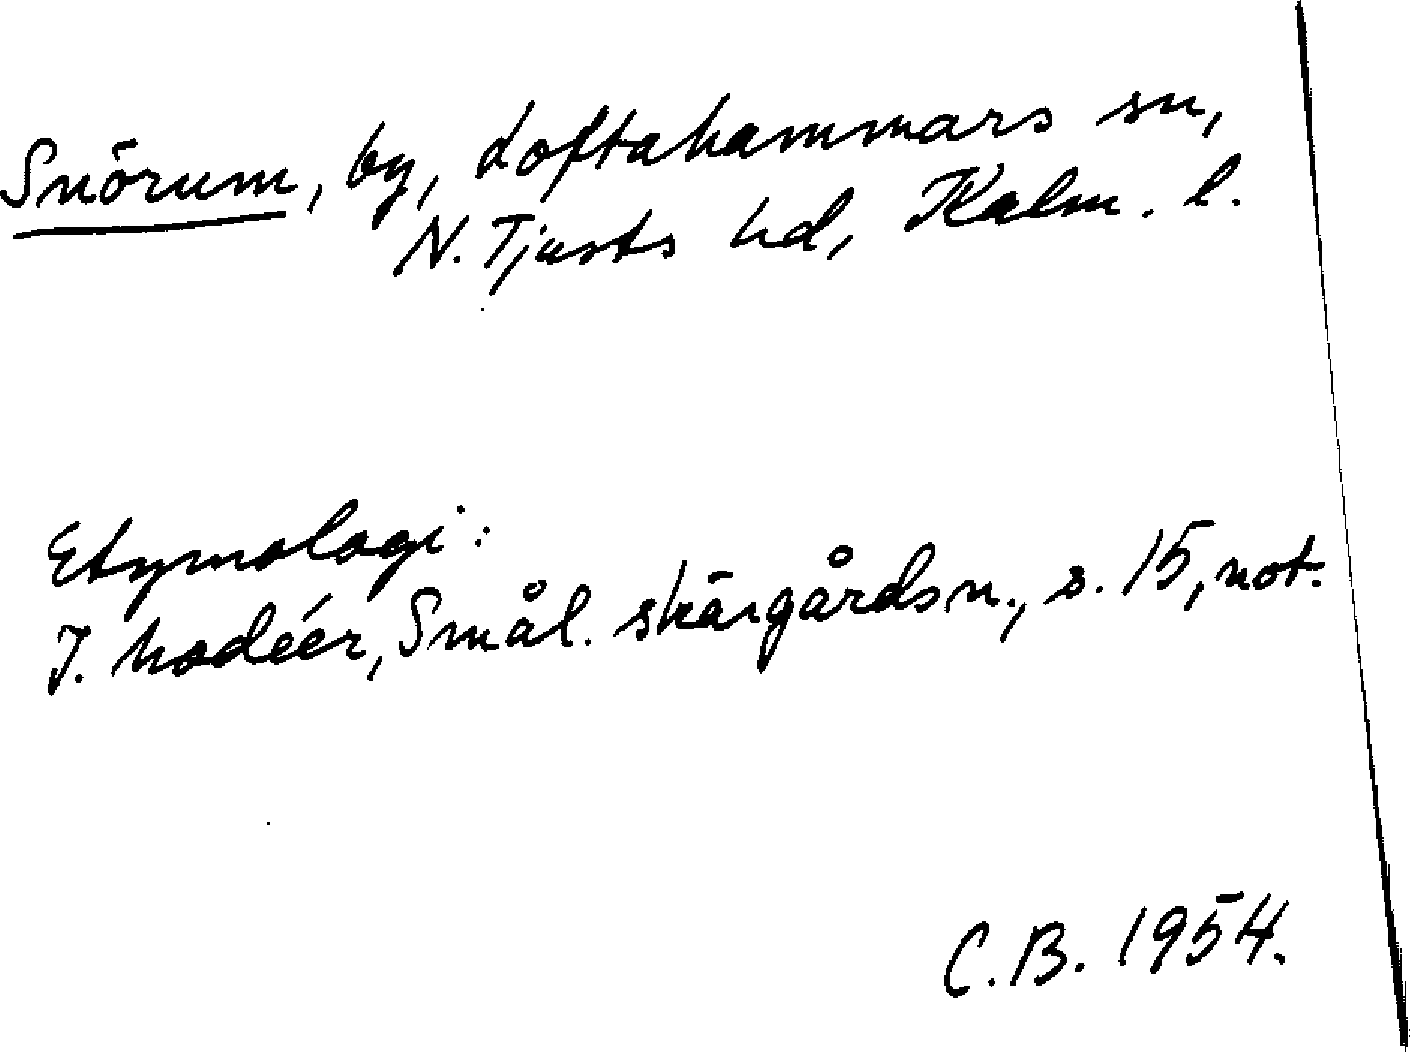 Snörum, by, Loftahammars sn,
N. Tjusts hd, Kalm. l.
Etymologi:
I. Modéer, Smål. skärgårdsn., s. 15, not.
C.B. 1954.